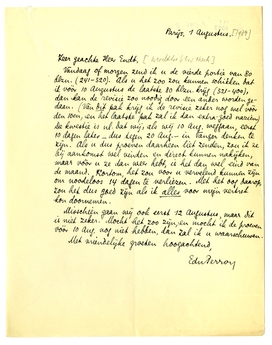 Parijs, 1 Augustus. [1934]
Zeer geachte Heer Endt,
Vandaag of morgen zend ik u de vierde portie van 80
blzn. (241-320). Als u het zoo zou kunnen schikken dat
ik vóór 10 Augustus de laatste 80 blzn. krijg (321-400),
dan kan de revisie zoo noodig door een ander worden ge-
daan. (Van dit pak krijg ik de revisie zeker nog wel vóór
den 10en, en het laatste pak zal ik dan extra-goed nazien.)
De kwestie is nl. dat wij, als wij 10 Aug. weggaan, eerst
10 dagen later – dus tegen 20 Aug. – in Tanger zouden
zijn. Als u de proeven daarheen liet zenden, zou ik ze
bij aankomst wel vinden, en direct kunnen nakijken,
maar vóór u ze dan weer terug hebt, is het dan wel eind van
de maand. Kortom, het zou u vervelend kunnen zijn
om noodeloos 14 dagen te verliezen. Met het oog daarop
zou het dus goed zijn als ik alles vóór mijn vertrek
kon doornemen.
Misschien gaan wij ook eerst 12 Augustus, maar dit
is niet zeker. Mocht het zoo zijn, en mocht ik de proeven
vóór 10 Aug. nog niet hebben, dan zal ik u waarschuwen.
Met vriendelijke groeten hoogachtend,
EduPerron